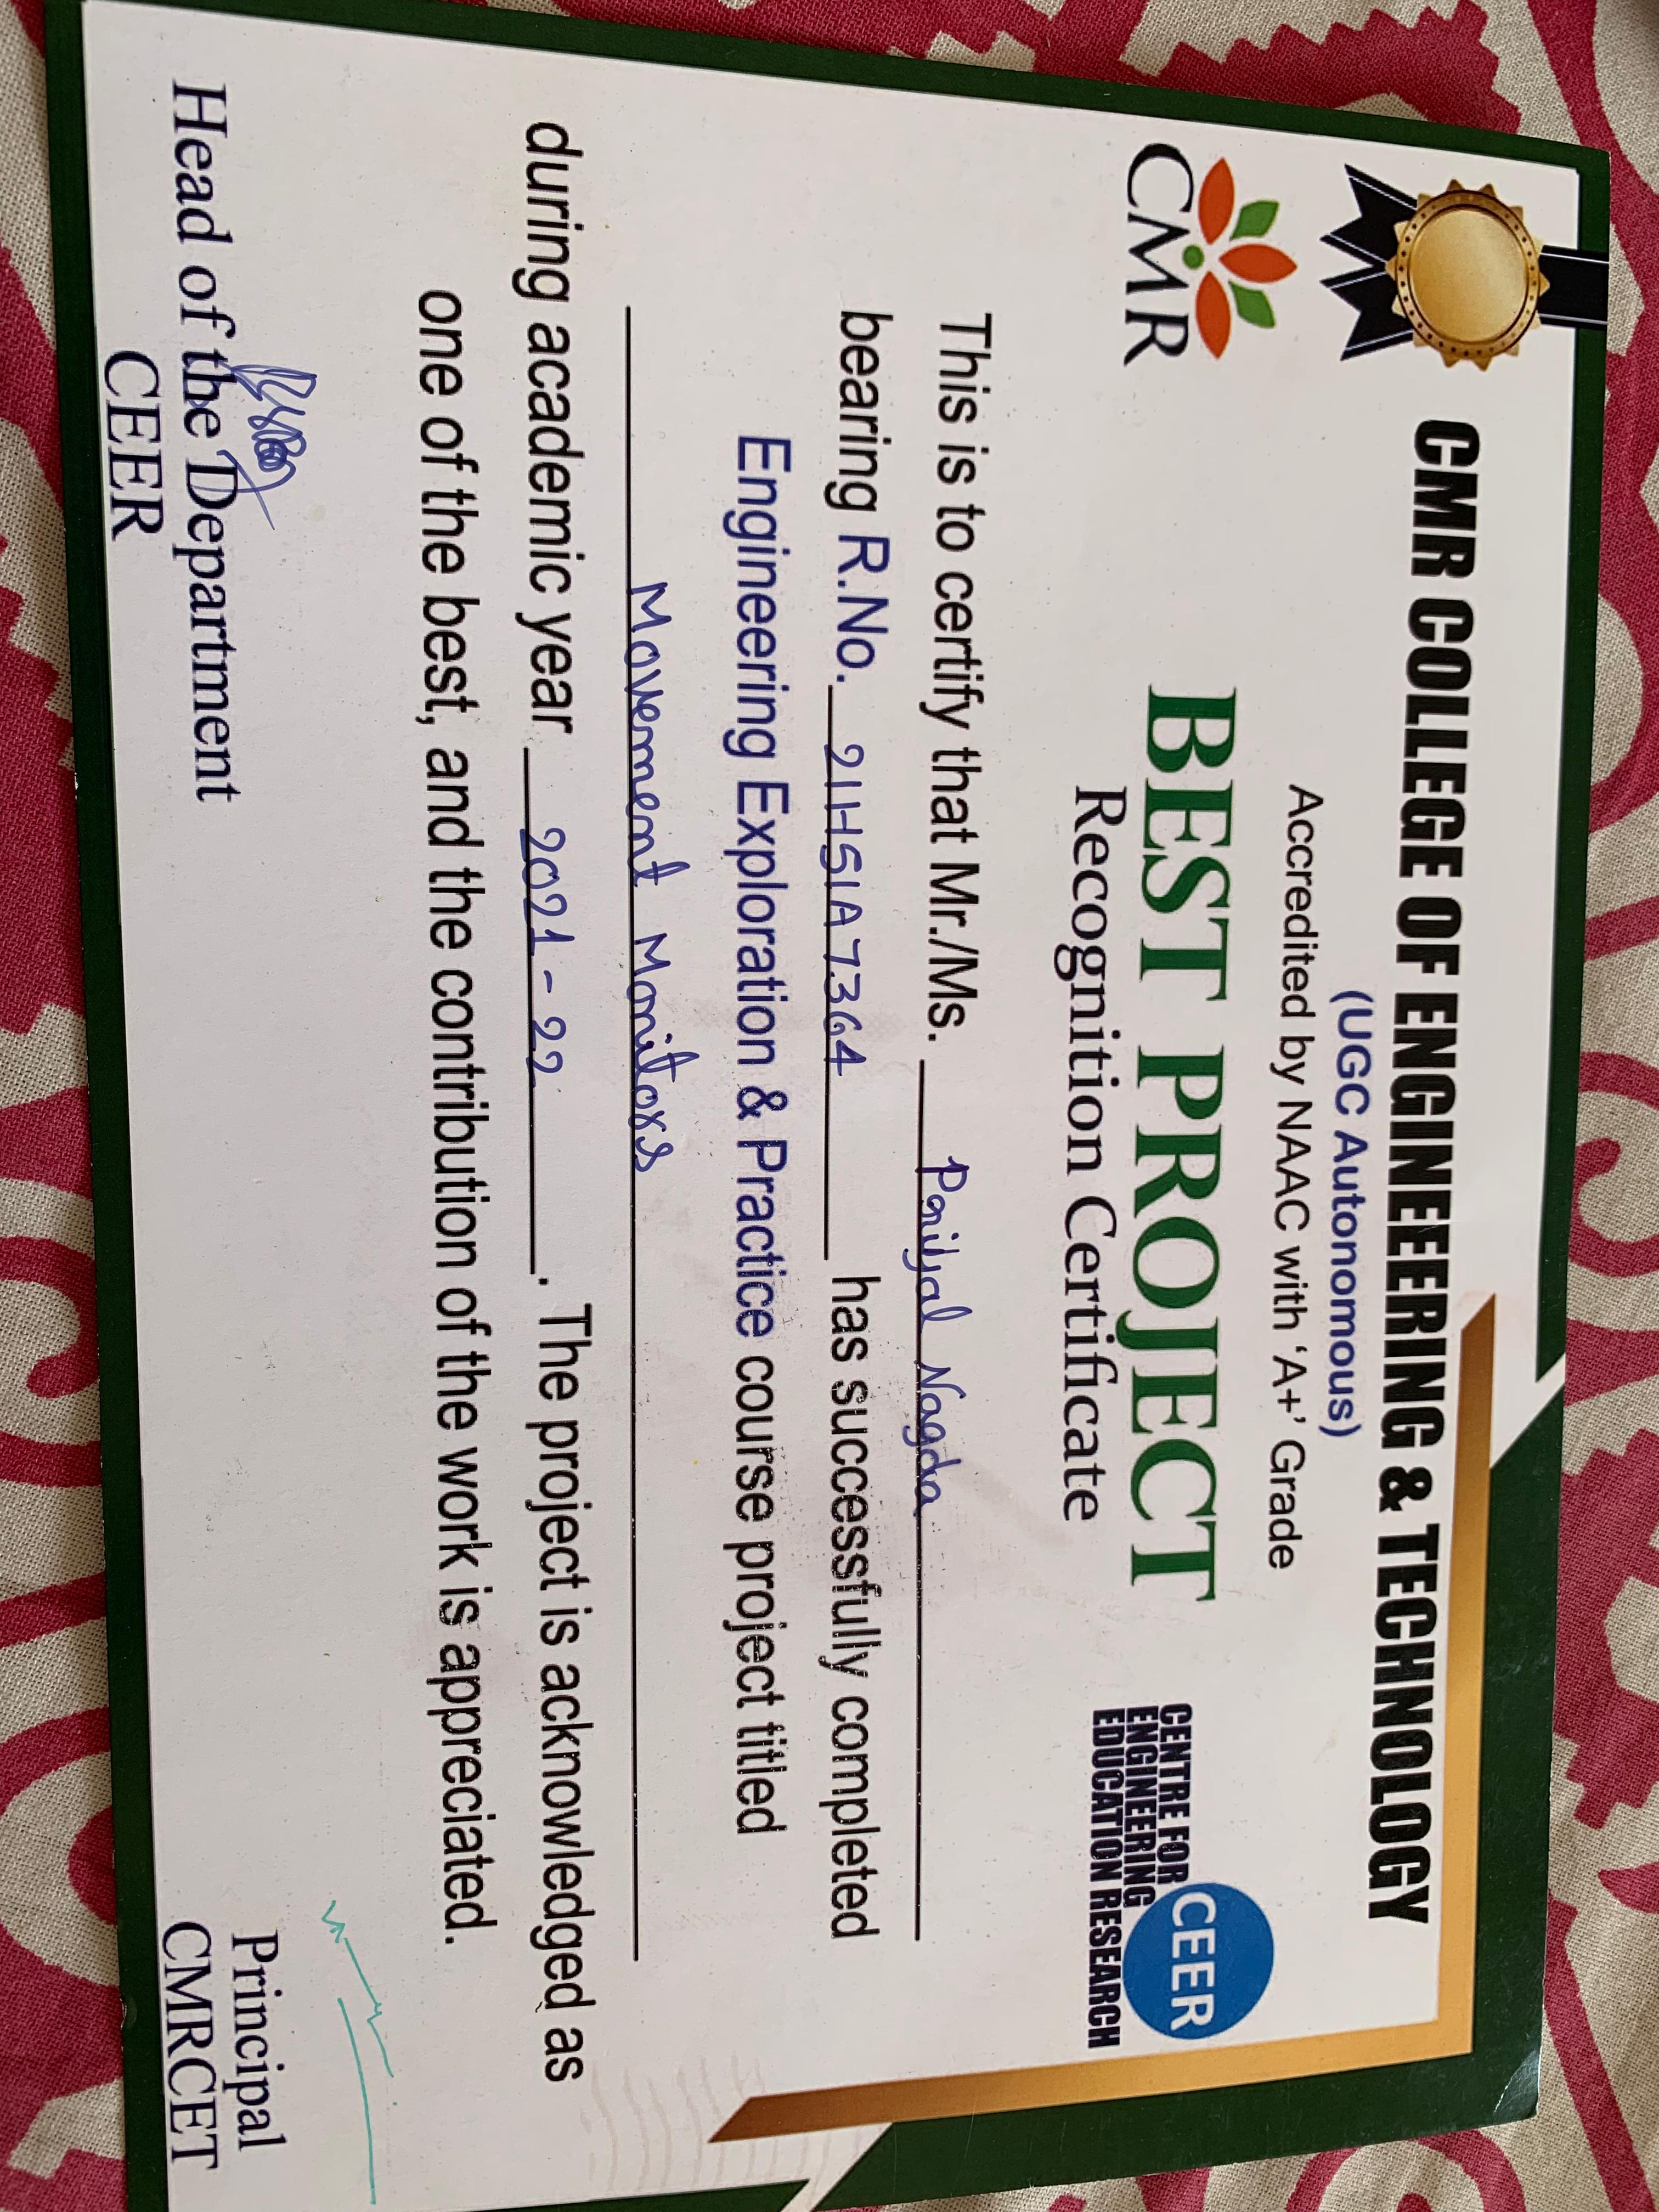 CMR COLLEGE OF ENGINEERING & TECHNOLOGY
(UGC Autonomous)
Accredited by NAAC with 'A+' Grade
CMR
BEST PROJECT
Recognition Certificate
CEER
CENTRE FOR
ENGINEERING
EDUCATION RESEARCH
This is to certify that Mr./Ms. Parijal Nagda
bearing R.No. 21H51A7364 has successfully completed
Engineering Exploration & Practice course project titled
Movement Monitors
during academic year 2021-22. The project is acknowledged as
one of the best, and the contribution of the work is appreciated.
Head of the Department
CEER
Principal
CMRCET